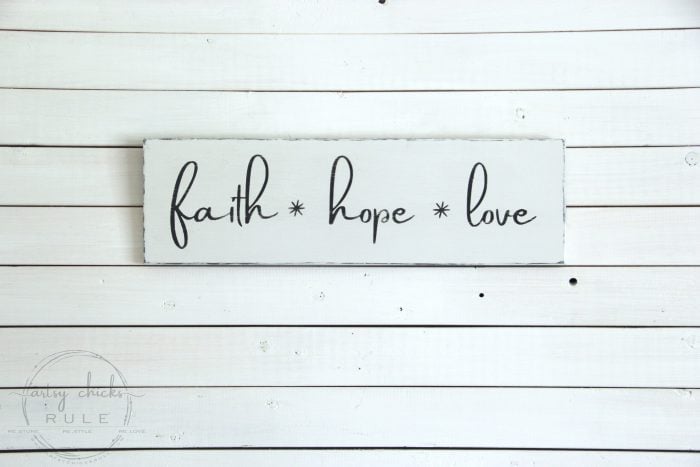 faith * hope * love
artsy chicks
RULE
RE.STORE. RE.STYLE. RE.LOVE.